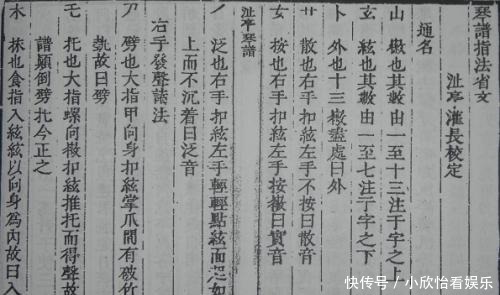 琴譜指法省文
沚亭淮長校定
通名
山 徽也其數由一至十三注于字之上
玄 絃也其數由一至七注于字之下
卜 外也十三徽盡處曰外
艹 散也右手扣絃左手不按曰散音
女 按也右手扣絃左手按徽曰實音
沚亭琴譜
泛也右手扣絃左手輕輕點絃面
上而不沉着曰泛音
右手發聲諸法
尸 劈也大指甲向身扣絃掌爪間有破竹
埶故曰劈
乇 托也大指螺向徽扣絃推托而得聲故
譜顛倒劈托今正之
木 抹也食指入絃絃以向身為內故曰入
快传号 / 小欣怡看娱乐